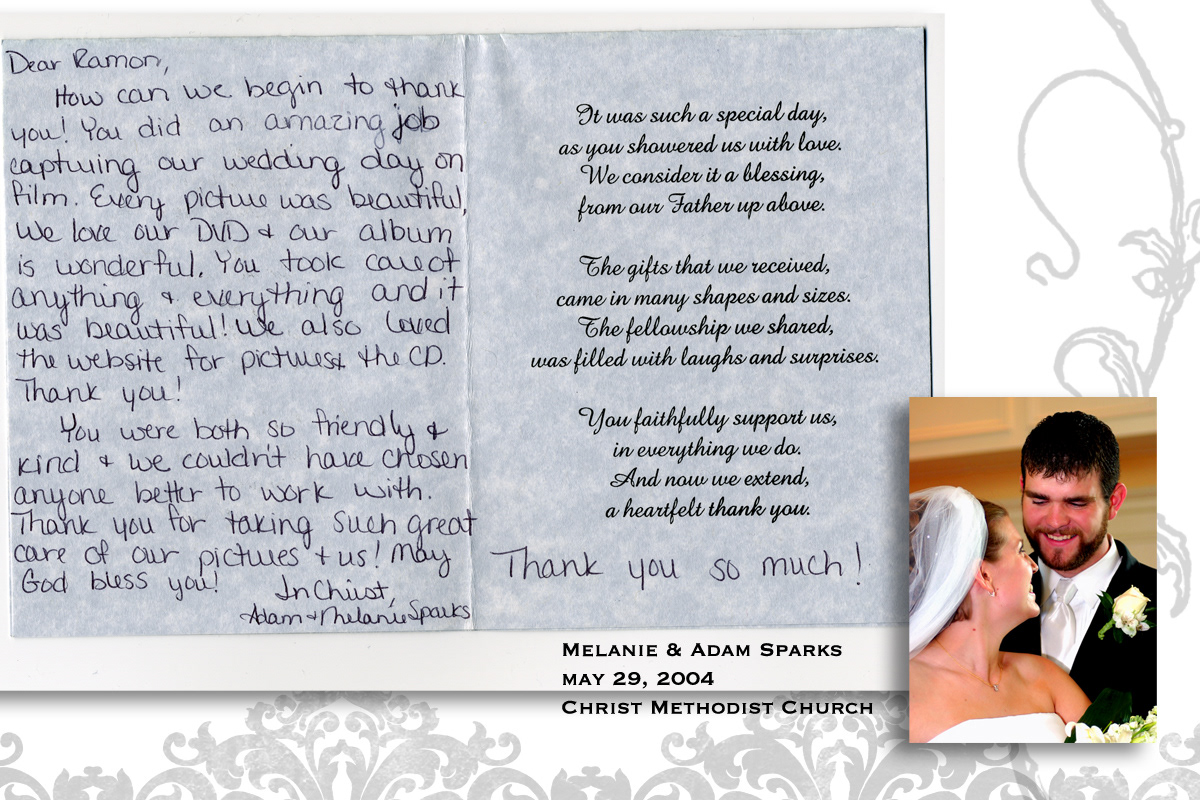 Dear Ramon,
How can we begin to thank
you! You did an amazing job
capturing our wedding day on
film. Every picture was beautiful,
We love our DVD & our album
is wonderful. You took care of
anything & everything and it
was beautiful! We also loved
the website for pictures & the CD.
Thank you!
You were both so friendly &
kind & we couldn't have chosen
anyone better to work with.
Thank you for taking such great
care of our pictures + us! May
God bless you!
In Christ,
Adam & Melanie Sparks
It was such a special day,
as you showered us with love.
We consider it a blessing,
from our Father up above.
The gifts that we received,
came in many shapes and sizes.
The fellowship we shared,
was filled with laughs and surprises.
You faithfully support us,
in everything we do.
And now we extend,
a heartfelt thank you.
Thank you so much!
Melanie & Adam Sparks
may 29, 2004
Christ Methodist Church